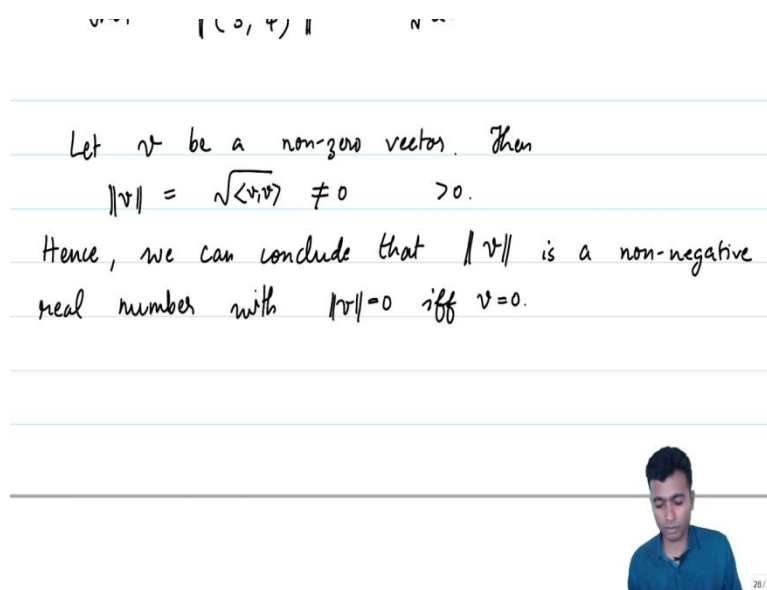 ‖(3, 4)‖
Let v be a non-zero vector. Then
‖v‖ = √⟨v,v⟩ ≠ 0 >0.
Hence, we can conclude that ‖v‖ is a non-negative
real number with ‖v‖=0 iff v=0.
28/